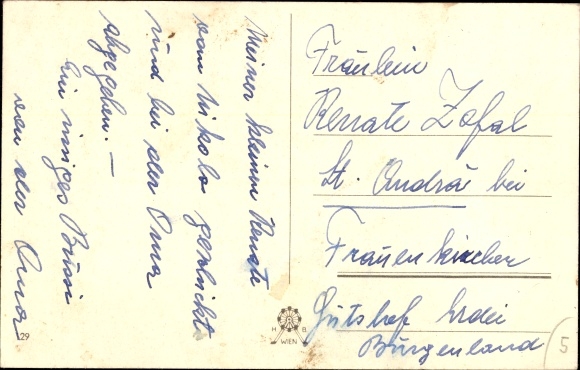 Meiner kleinen Renate
vom Nikolo geschickt
und bei der Oma
abgegeben. —
Ein inniges Bussi
von der Oma
Fräulein
Renate Zofal
St. Andrä bei
Frauenkirchen
Gutshof Erdei
Burgenland
29
H B
WIEN
5